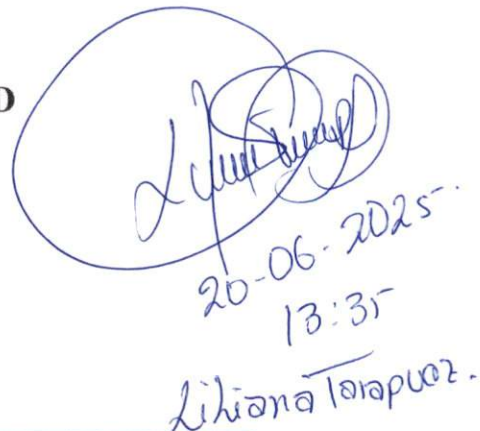 20-06-2025.
13:35
Liliana Tarapuez.